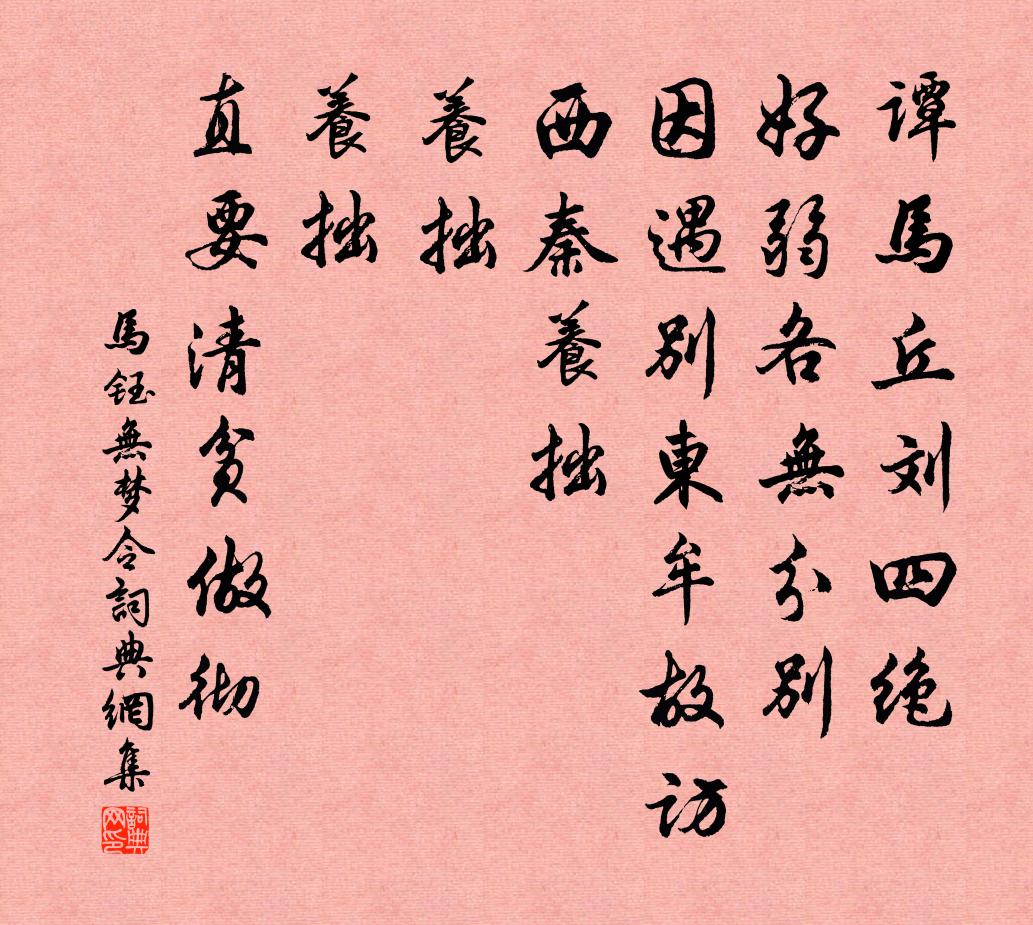 谭馬丘刘四绝
好弱各無分别
因遇别東牟故访
西秦養拙
養拙
養拙
直要清貧做彻
馬钰無梦令詞典網集
詞典网印